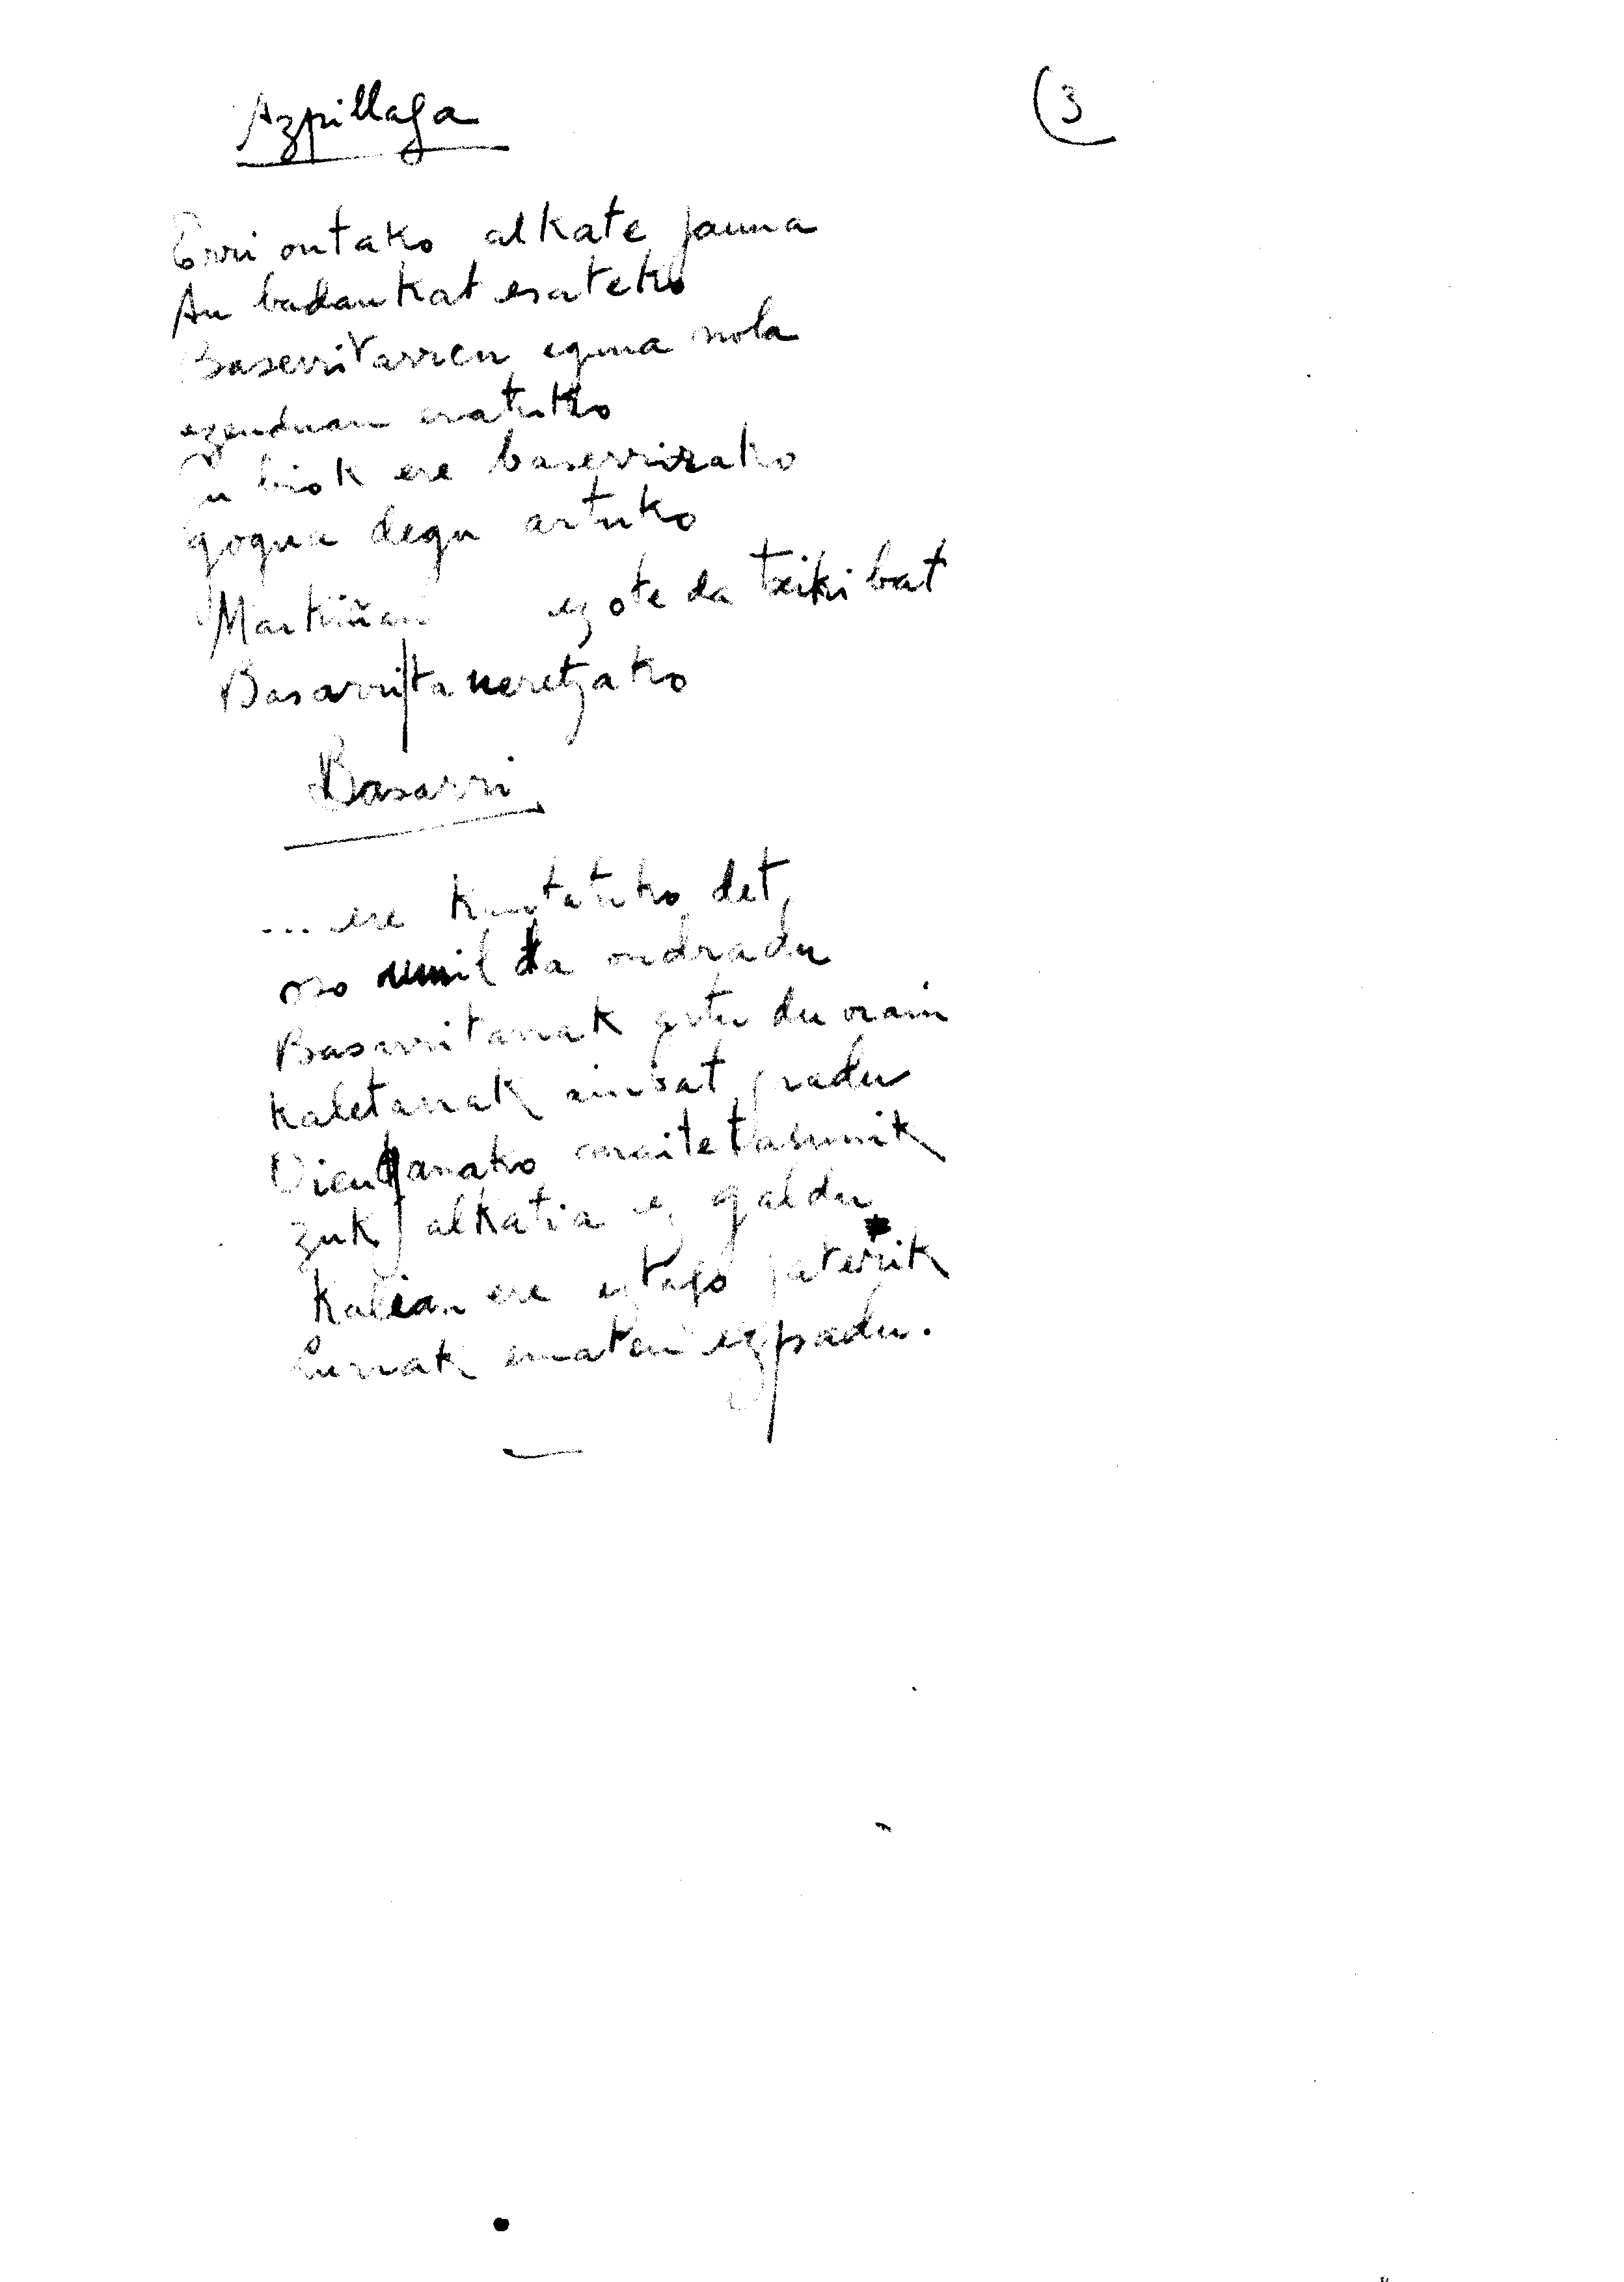 Azpillaga
(3
Erri ontako alkate jauna
Au badaukat esateko
Baserritarren eguna nola
ezenduan eratuko
Gu biok ere baserrirako
gogua degu artuko
Markiñan ez ote da txiki bat
Basarri ta neretzako
Basarri
... ere kantatuko det
oso umil da ondradu
Basarritarrak artu du orain
kaletarrak ainbat gradu
Oientzanako maitetasunik
zuk alkatia ez galdu
Kalean ere eztago jaterik
Lurrak ematen ezpadu.